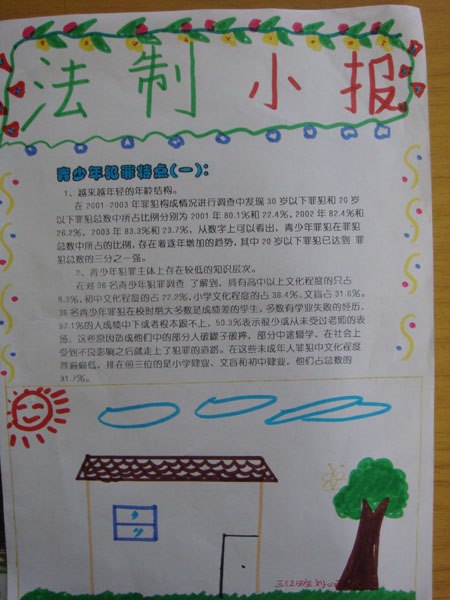 法制小报
青少年犯罪特点(一):
1、越来越年轻的年龄结构。
在2001-2003年罪犯构成情况进行调查中发现30岁以下罪犯和20岁
以下罪犯总数中所占比例分别为2001年80.1%和22.4%，2002年82.4%和
26.2%，2003年83.3%和23.7%，从数字上可以看出，青少年罪犯在罪犯
总数中所占的比例，存在着逐年增加的趋势，其中20岁以下罪犯已达到 罪
犯总数的三分之一强。
2、青少年犯罪主体上存在较低的知识层次。
在对36名青少年犯罪调查 了解到，具有高中以上文化程度的只占
8.3%，初中文化程度的占22.2%，小学文化程度的占38.4%、文盲占31.6%。
36名青少年罪犯在校时绝大多数是成绩差的学生，多数有学业失败的经历，
57.1%的人成绩中下或者根本跟不上，50.3%表示很少或从未受过老师的表
扬，这些原因造成他们中的部分人破罐子破摔，部分中途辍学，在社会上
受到不良影响之后就走上了犯罪的道路。在这些未成年人罪犯中文化程度
普遍偏低，排在前三位的是小学肄业、文盲和初中肄业，他们占总数的
91.7%。
三(2)班